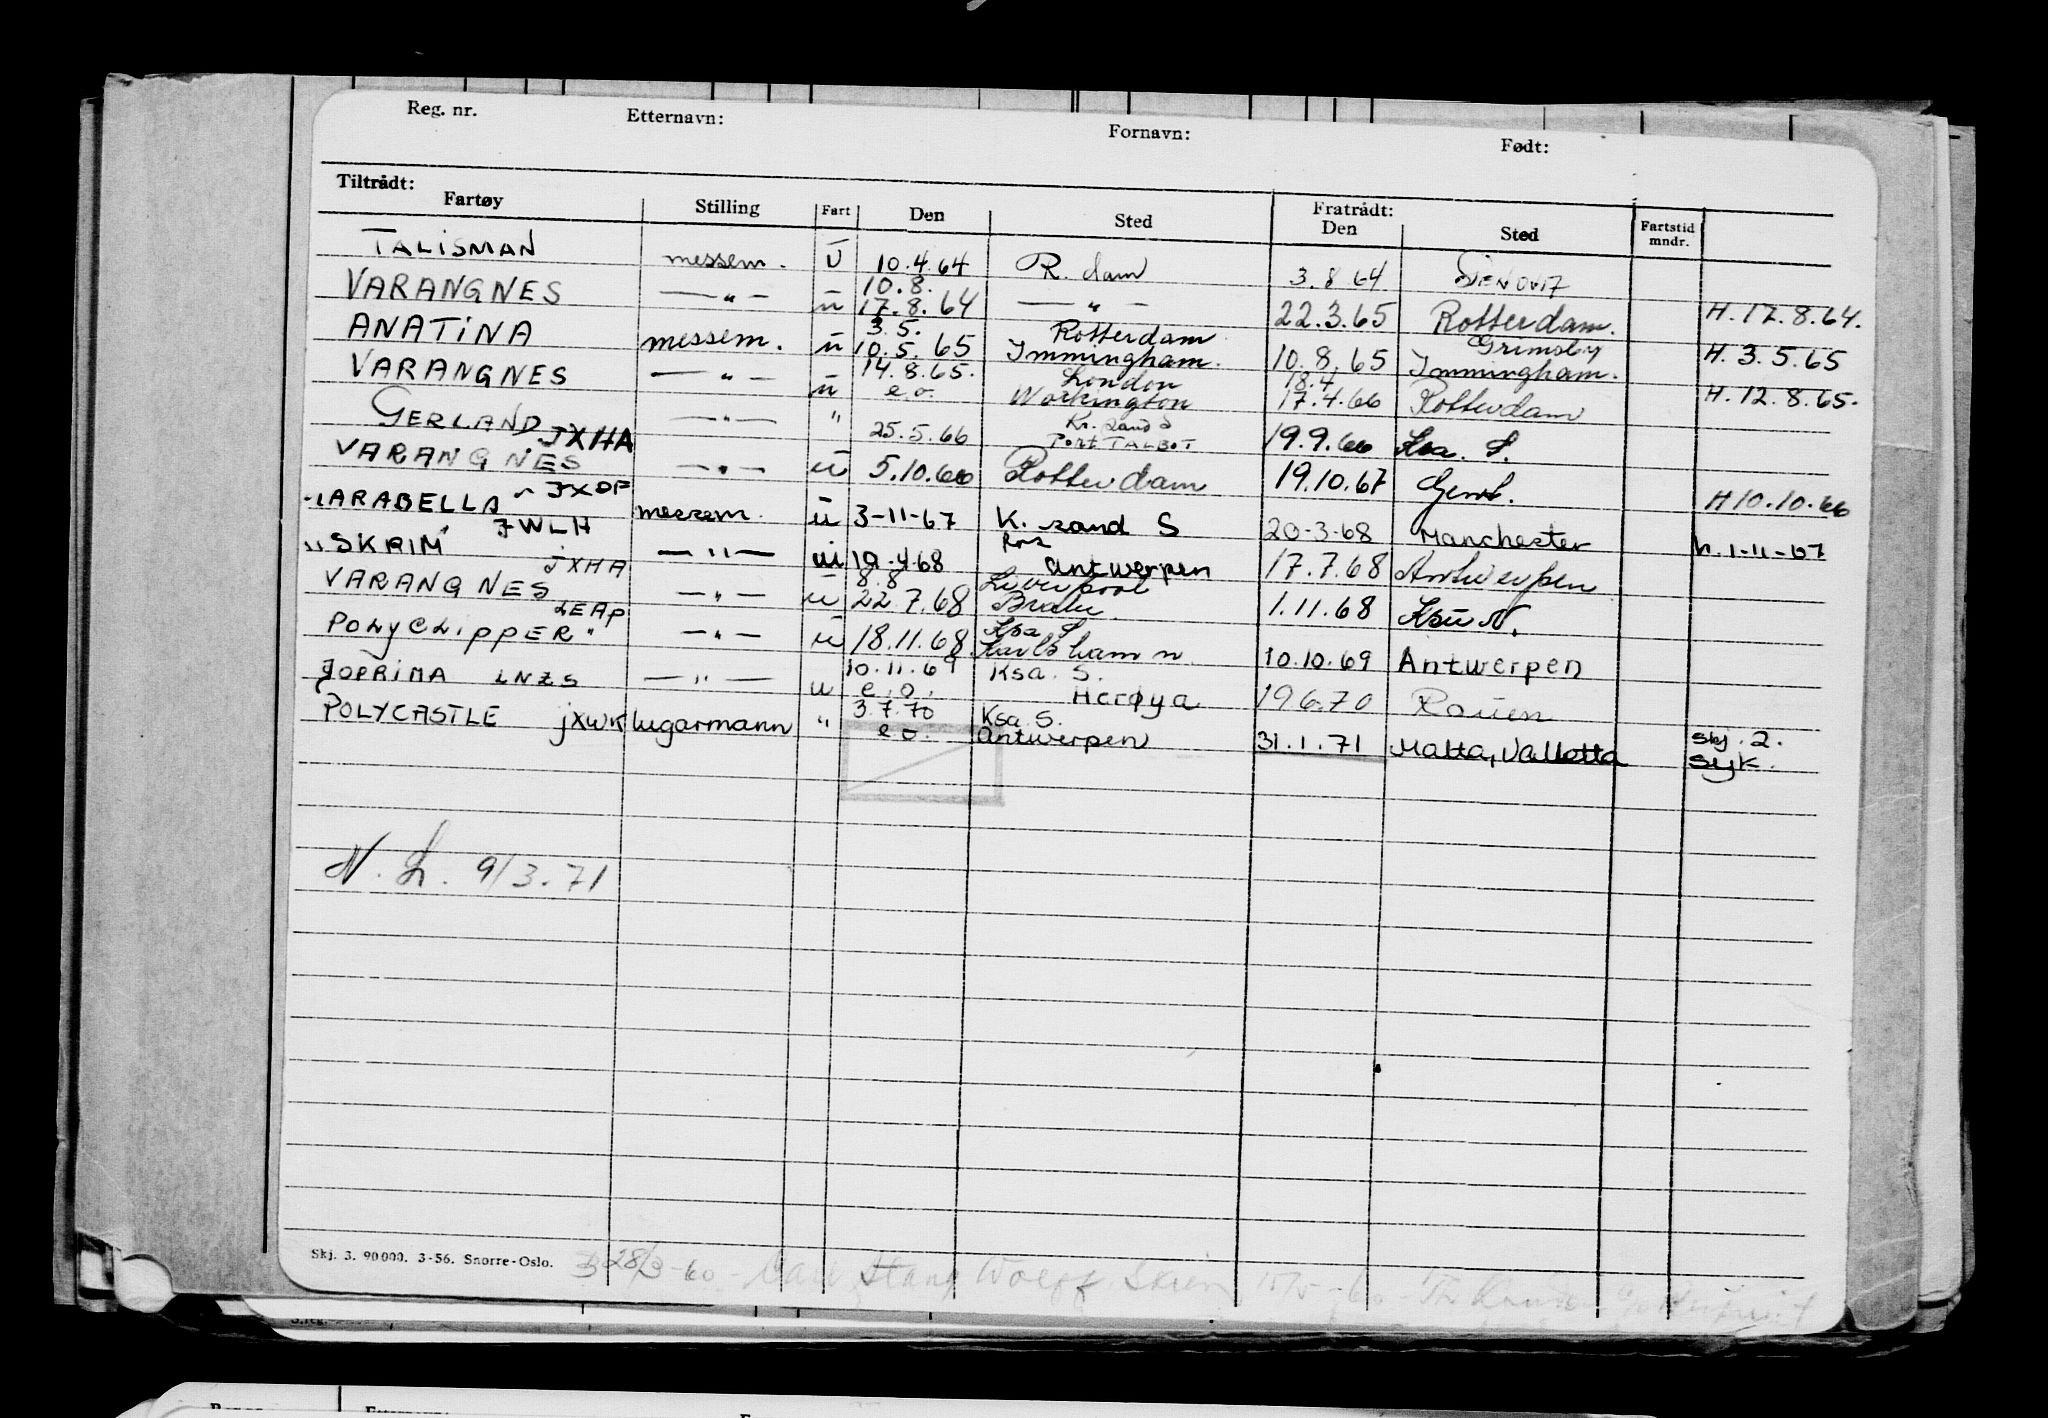 Reg. nr. Etternavn: Fornavn: Født:
Tiltrådt: Fratrådt:
Fartøy Stilling Fart Den Sted Den Sted Fartstid mndr.
TALISMAN messem. U 10.4.64 R. dam 3.8 64
10.8.
VARANGNES — " — u 17.8.64 — " — 22.3.65 Rotterdam. H. 17.8.64.
3.5. Rotterdam Grimsby
ANATINA messem. u 10.5.65 Immingham. 10.8.65 Immingham. H. 3.5.65
14.8.65. London 18.4
VARANGNES — " — u e.o. Workington 17.4.66 Rotterdam H. 12.8.65.
Kr. sand S
GERLAND — " — " 25.5.66 Port TALBOT 19.9.66 Ksa. S.
JXHA
VARANGNES — " — u 5.10.66 Rotterdam 19.10.67 Gent. H 10.10.66
ARABELLA " JXDF messem. u 3-11-67 K. sand S 20-3-68 Manchester h. 1-11-67
JWLH
"SKRIM" — " — u 10.4.68 Antwerpen 17.7.68 Antwerpen
JXHA 8.8 Liverpool
VARANGNES — " — u 22.7.68 Brake 1.11.68 Ksu N.
LEAP Ksa S
POLYCLIPPER " — " — u 18.11.68. Karlshamn. 10.10.69 Antwerpen
10.11.69 Ksa. S.
JOPRIMA LNZS — " — u e.o. Herøya 19.6.70 Rouen
3.7.70 Ksa S.
POLYCASTLE JXWK lugarmann " e.o. Antwerpen 31.1.71 Malta, Valletta skj. 2.
syk.
N. L. 9/3.71
Skj. 3. 90000. 3-56. Snorre-Oslo. 28/3-60 - Carl Stang Wolff. Skien